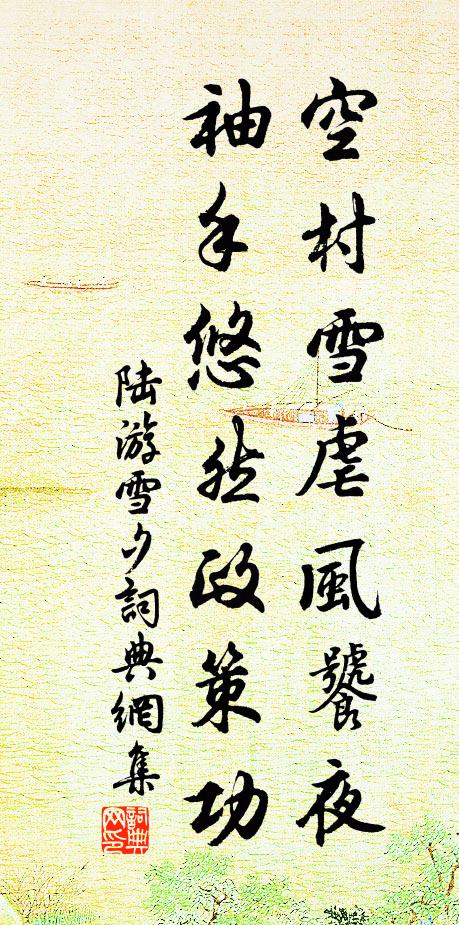 空村雪虐風饕夜
袖手悠然政策功
陆游雪夕詞典網集
詞典网印